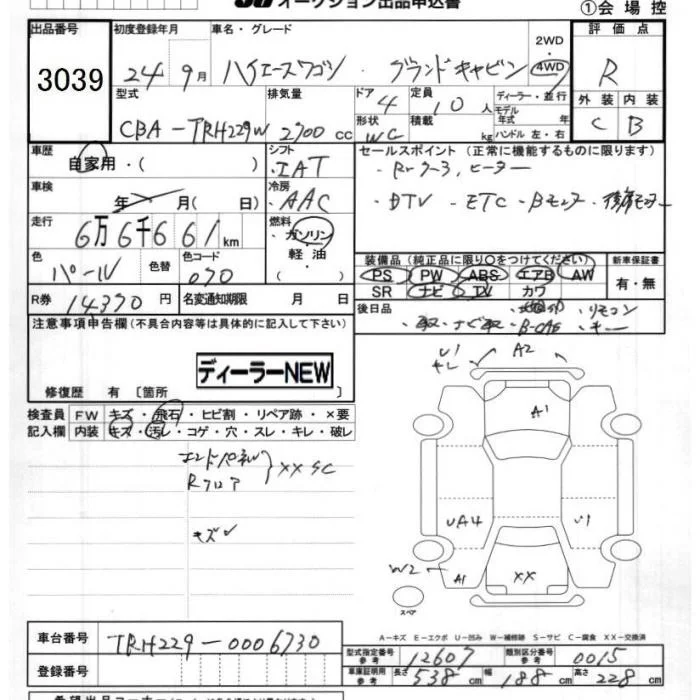 オークション出品申込書
①会場控
出品番号 3039
初度登録年月 24年9月
車名・グレード ハイエースワゴン・グランドキャビン
2WD 4WD
評価点 R
外装 内装
C B
型式 CBA-TRH229W
排気量 2700cc
ドア 4
形状 WG
定員 10人
積載 kg
ディーラー・並行
モデル年式 年
ハンドル 左・右
車歴 自家用・( )
シフト IAT
車検 年 月( 日)
冷房 AAC
走行 6万6千661km
燃料 ガソリン・軽油・( )
色 パール
色替
色コード 070
R券 14370円
名変通知期限 月 日
セールスポイント(正常に機能するものに限ります)
・Rrクーラー、ヒーター
・DTV・ETC・Bモニター・後席モニター
装備品(純正品に限り○をつけてください)
新車保証書 有・無
PS PW ABS エアB AW
SR ナビ TV カワ
後日品
・リモコン
・キー
注意事項申告欄(不具合内容等は具体的に記入して下さい)
ディーラーNEW
修復歴 有 [箇所 ]
検査員記入欄
FW キズ・飛石・ヒビ割・リペア跡・×要
内装 キズ・汚レ・コゲ・穴・スレ・キレ・破レ
エンドパネル
Rフロア
XX SC
キズ
U1
キレ
A2
A1
UA4
U1
W2
A1
XX
スペア
A-キズ E-エクボ U-凹み W-補修跡 S-サビ C-腐食 XX-交換済
車台番号 TRH229-0006730
登録番号
型式指定番号 参考 12607
類別区分番号 参考 0015
車庫証明用 参考 長さ 538cm 幅 188cm 高さ 228cm